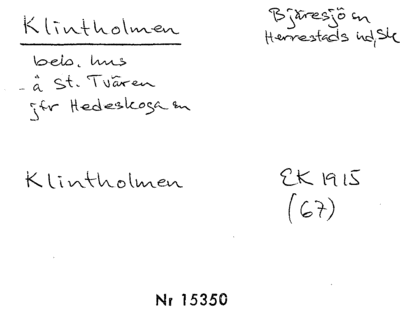 Klintholmen
Bjäresjö sn
Herrestads hd, Sk
beb. hus
å St. Tvären
jfr Hedeskoga sn
Klintholmen
EK 1915
(67)
Nr 15350